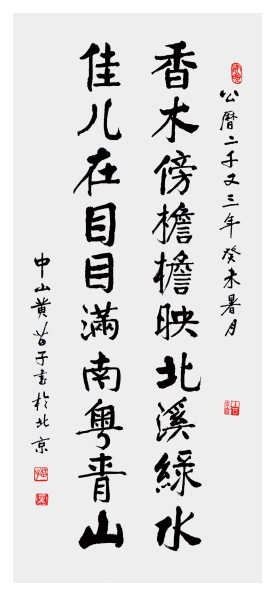 公曆二千又三年癸未暑月
香木傍檐檐映北溪綠水
佳儿在目目滿南粵青山
中山黄苗子書於北京